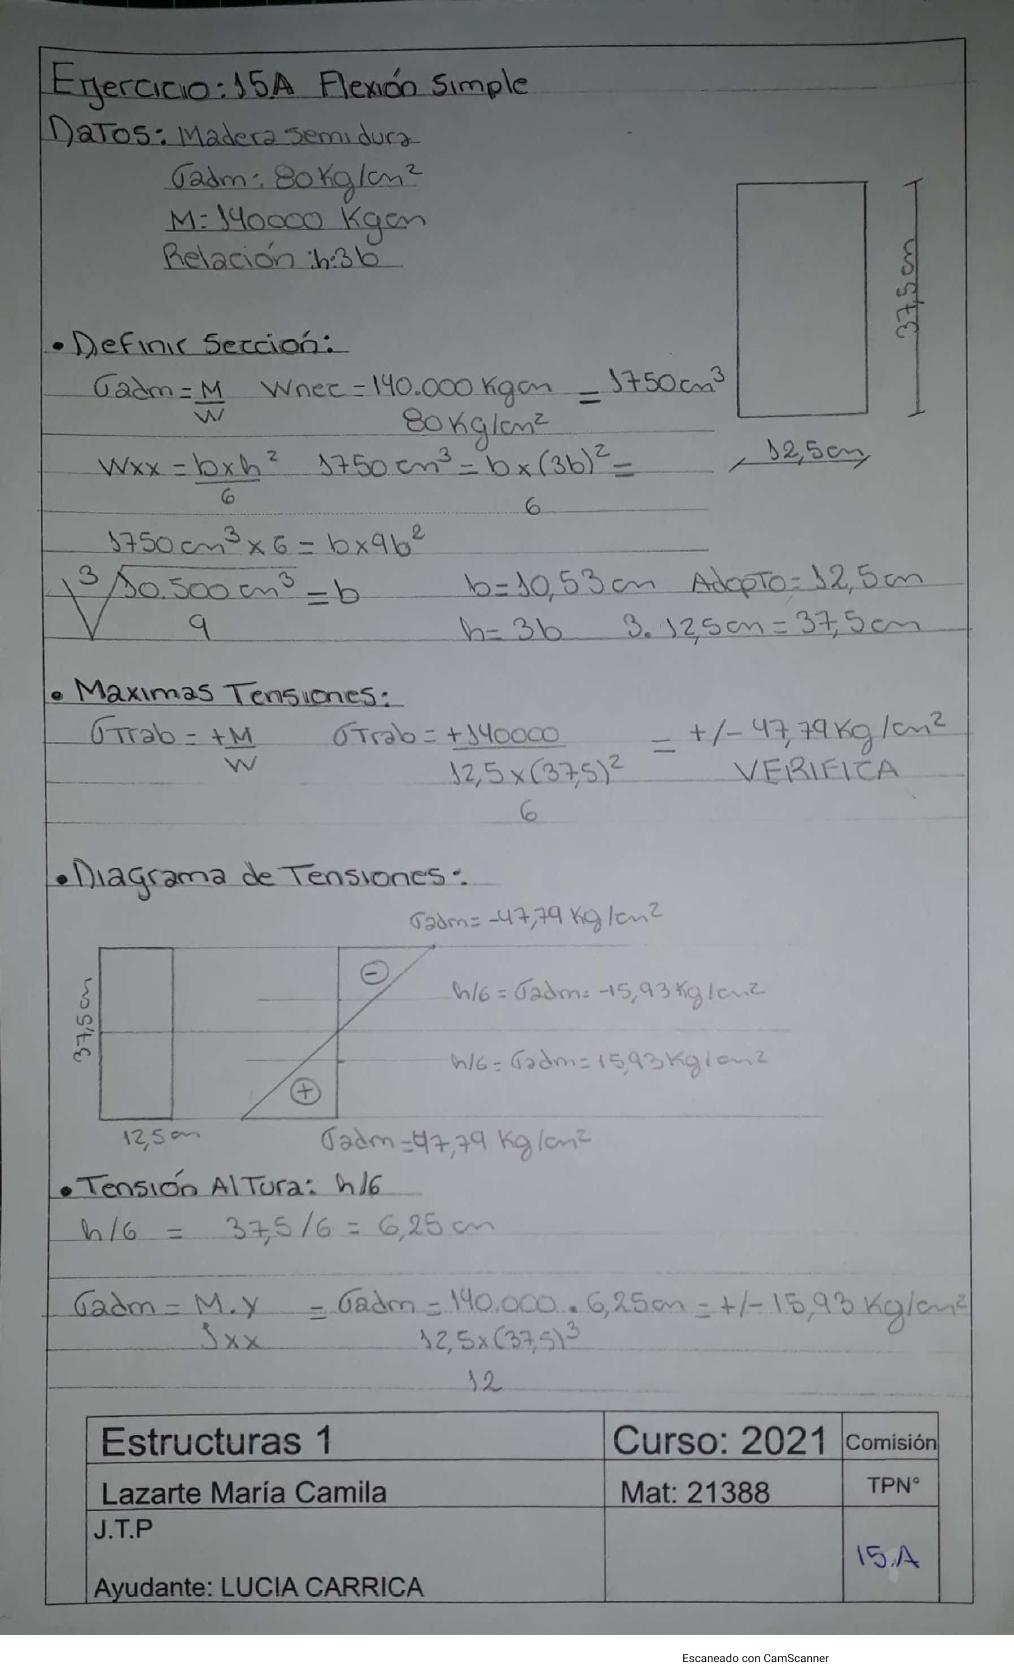 Ejercicio: 15A Flexión Simple
Datos: Madera semidura
σadm: 80 Kg/cm²
M: 140000 Kgcm
Relación: h:3b
37,5 cm
• Definir Sección:
σadm = M/W Wnec = 140.000 Kgcm / 80 Kg/cm² = 1750 cm³
Wxx = b x h² / 6 1750 cm³ = b x (3b)² / 6 =
12,5cm
1750 cm³ x 6 = b x 9b²
³√10.500 cm³ / 9 = b b = 10,53 cm Adopto = 12,5 cm
h = 3b 3. 12,5cm = 37,5 cm
• Maximas Tensiones:
σTrab = +M/W σTrab = +140000 / 12,5 x (37,5)² / 6 = +/- 47,79 Kg/cm²
VERIFICA
• Diagrama de Tensiones:
σadm = -47,79 Kg/cm²
-
h/6 = σadm = -15,93 Kg/cm2
37,5cm
h/6 = σadm = 15,93 Kg/cm2
+
12,5 cm
σadm = 47,79 Kg/cm²
• Tensión Altura: h/6
h/6 = 37,5/6 = 6,25 cm
σadm = M.y / Jxx = σadm = 140.000 . 6,25cm / 12,5 x (37,5)³ / 12 = +/- 15,93 Kg/cm²
Estructuras 1 Curso: 2021 Comisión
Lazarte María Camila Mat: 21388 TPN°
J.T.P
15.A
Ayudante: LUCIA CARRICA
Escaneado con CamScanner